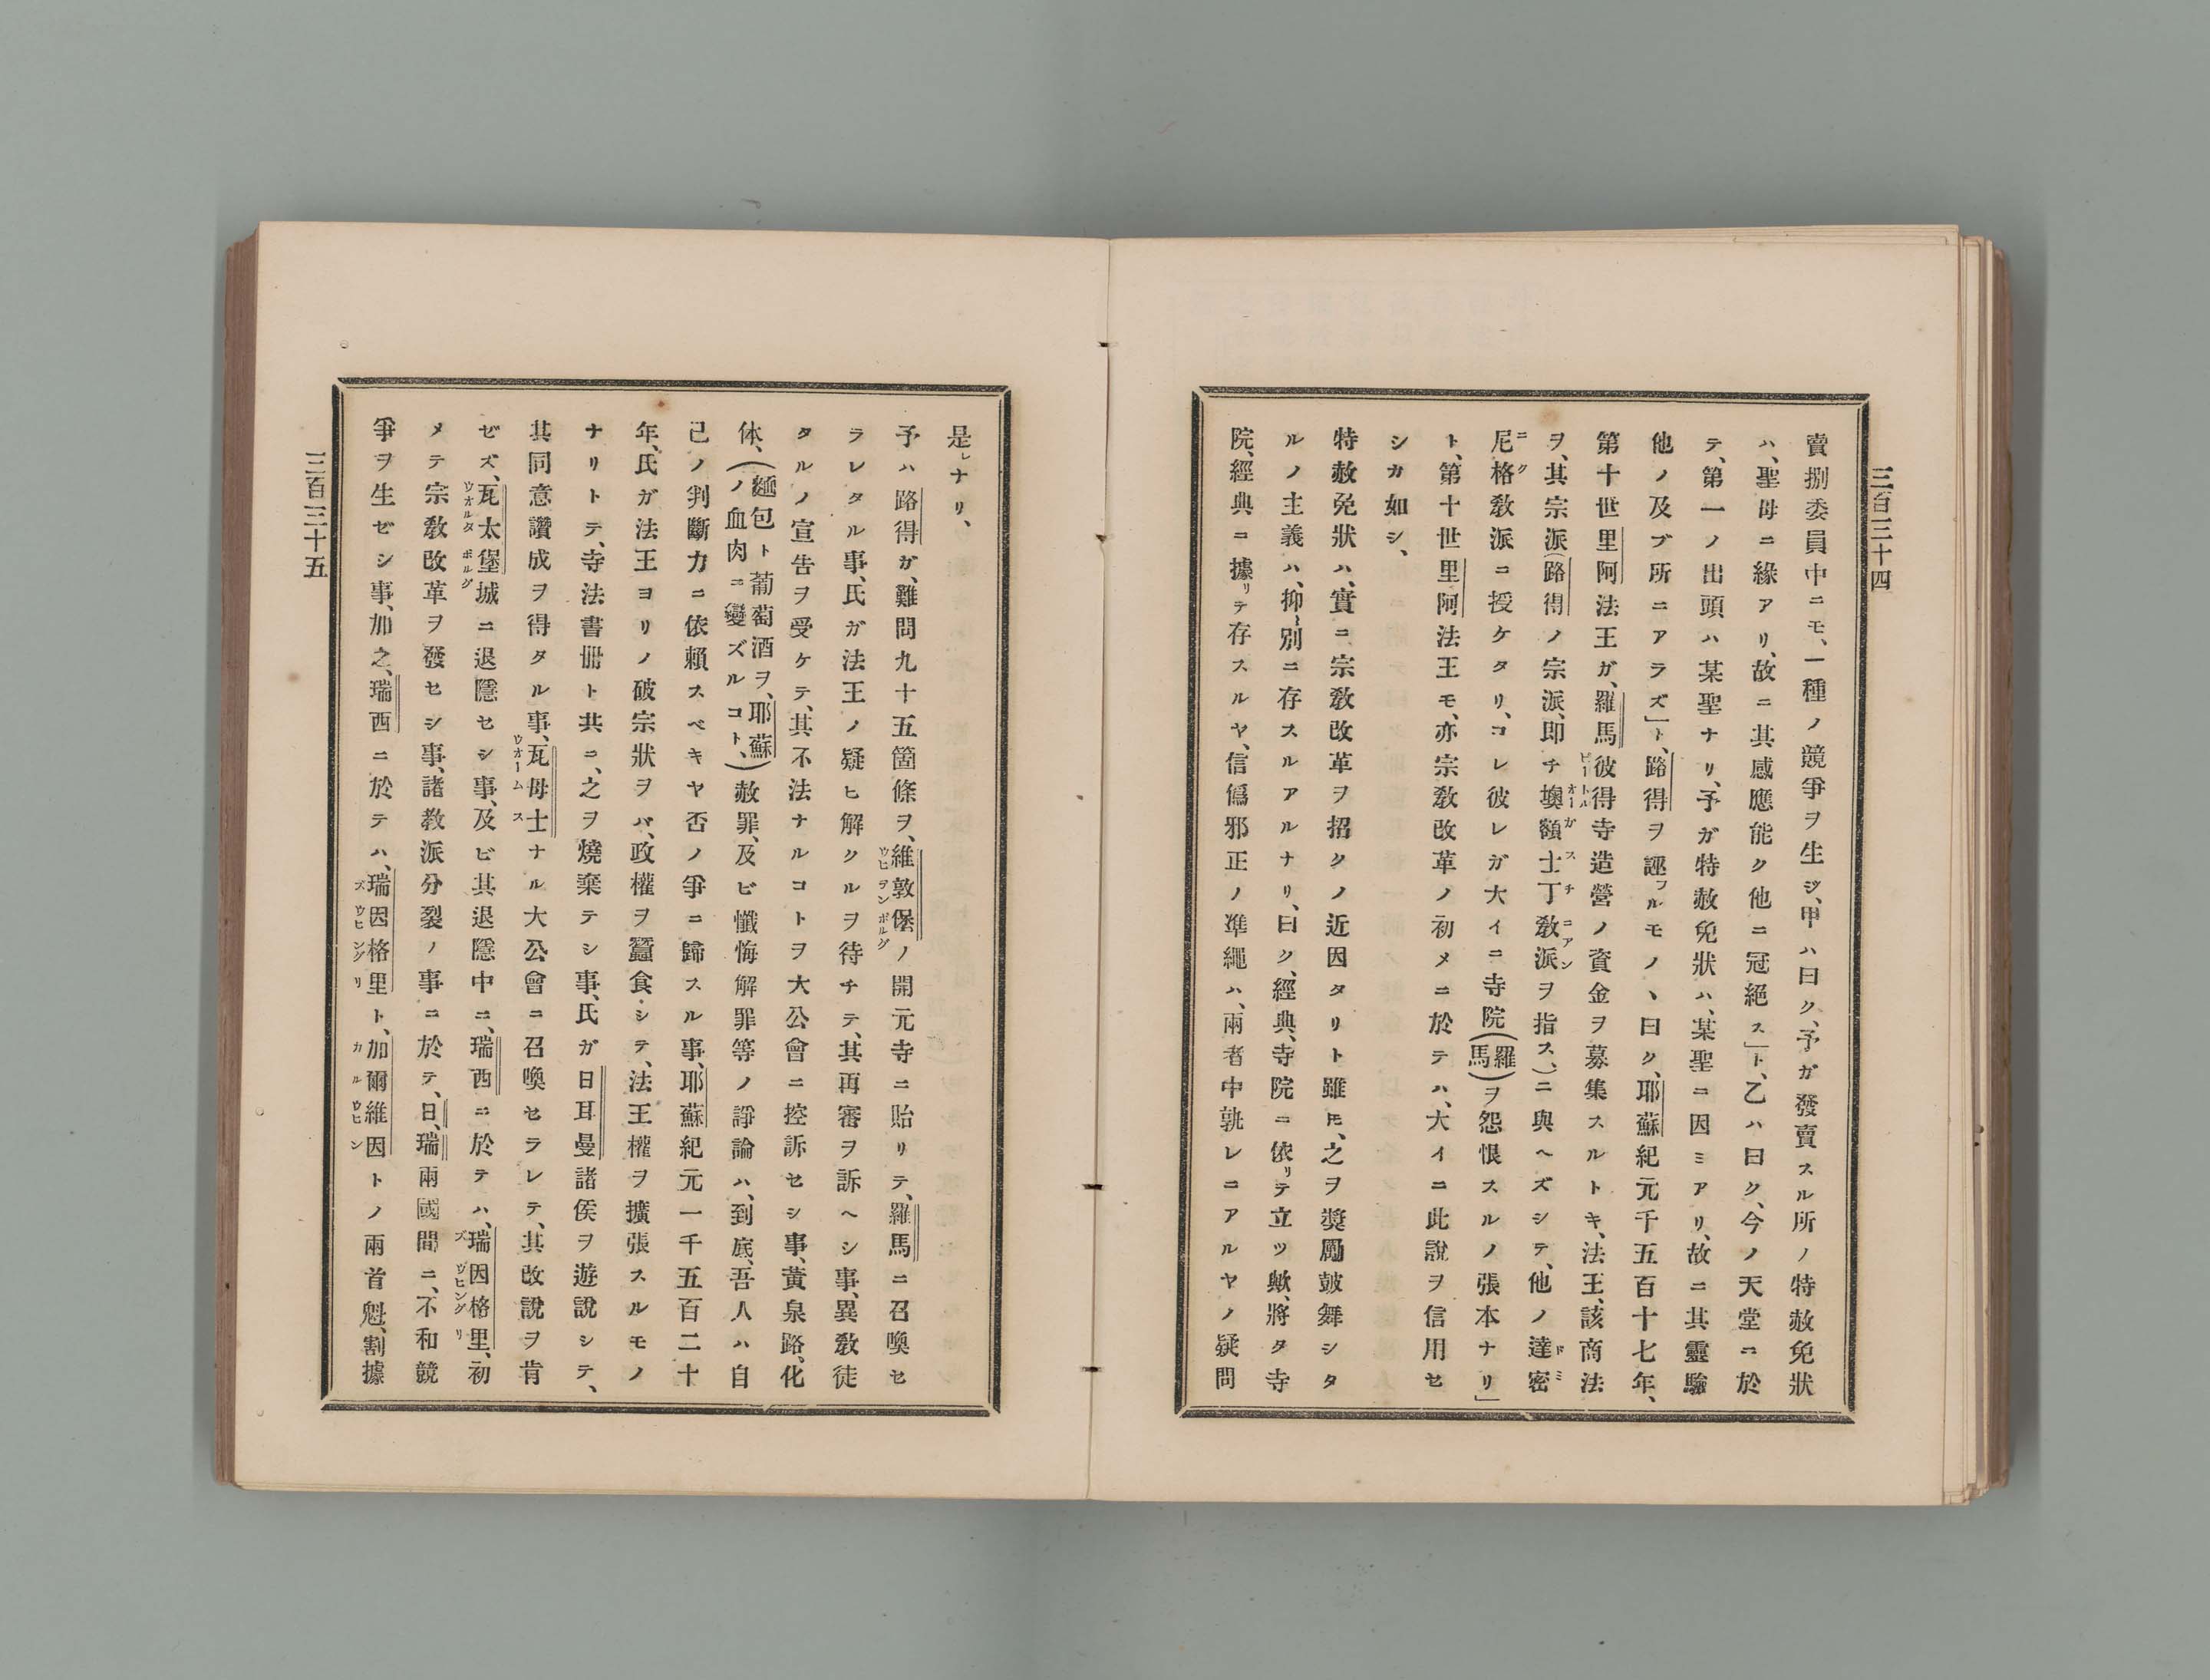 三百三十四
賣捌委員中ニモ、一種ノ競爭ヲ生ジ、甲ハ曰ク、予ガ發賣スル所ノ特赦免狀
ハ、聖母ニ緣アリ、故ニ其感應能ク他ニ冠絕ス」ト、乙ハ曰ク、今ノ天堂ニ於
テ、第一ノ出頭ハ某聖ナリ、予ガ特赦免狀ハ、某聖ニ因ミアリ、故ニ其靈驗
他ノ及ブ所ニアラズ」ト、路得ヲ誣フルモノ、曰ク、耶蘇紀元千五百十七年、
第十世里阿法王ガ、羅馬彼得寺造營ノ資金ヲ募集スルトキ、法王、該商法
ヲ、其宗派(路得ノ宗派、即チ墺額士丁敎派ヲ指ス、)ニ與ヘズシテ、他ノ達密
尼格敎派ニ授ケタリ、コレ彼レガ大イニ寺院(羅馬)ヲ怨恨スルノ張本ナリ」
ト、第十世里阿法王モ、亦宗敎改革ノ初メニ於テハ、大イニ此說ヲ信用セ
シカ如シ、
特赦免狀ハ、實ニ宗敎改革ヲ招クノ近因タリト雖𪜈、之ヲ奬勵鼓舞シタ
ルノ主義ハ、抑〻別ニ存スルアルナリ、曰ク、經典、寺院ニ依リテ立ツ歟、將タ寺
院、經典ニ據リテ存スルヤ、信僞邪正ノ準繩ハ、兩者中孰レニアルヤノ疑問
是レナリ、
予ハ路得ガ、難問九十五箇條ヲ、維敦堡ノ開元寺ニ貽リテ、羅馬ニ召喚セ
ラレタル事、氏ガ法王ノ疑ヒ解クルヲ待チテ、其再審ヲ訴ヘシ事、異敎徒
タルノ宣告ヲ受ケテ、其不法ナルコトヲ大公會ニ控訴セシ事、黃泉路、化
体、(麵包ト葡萄酒ヲ、耶蘇ノ血肉ニ變ズルコト、)赦罪、及ビ懺悔解罪等ノ諍論ハ、到底、吾人ハ自
己ノ判斷力ニ依賴スベキヤ否ノ爭ニ歸スル事、耶蘇紀元一千五百二十
年、氏ガ法王ヨリノ破宗狀ヲバ、政權ヲ蠶食シテ、法王權ヲ擴張スルモノ
ナリトテ、寺法書册ト共ニ、之ヲ燒棄テシ事、氏ガ日耳曼諸侯ヲ遊說シテ、
其同意讚成ヲ得タル事、瓦母士ナル大公會ニ召喚セラレテ、其改說ヲ肯
ゼズ、瓦太堡城ニ退隱セシ事、及ビ其退隱中ニ、瑞西ニ於テハ、瑞因格里、初
メテ宗敎改革ヲ發セシ事、諸敎派分裂ノ事ニ於テ、日、瑞兩國間ニ、不和競
爭ヲ生ゼシ事、加之、瑞西ニ於テハ、瑞因格里ト、加爾維因トノ兩首魁、割據
三百三十五